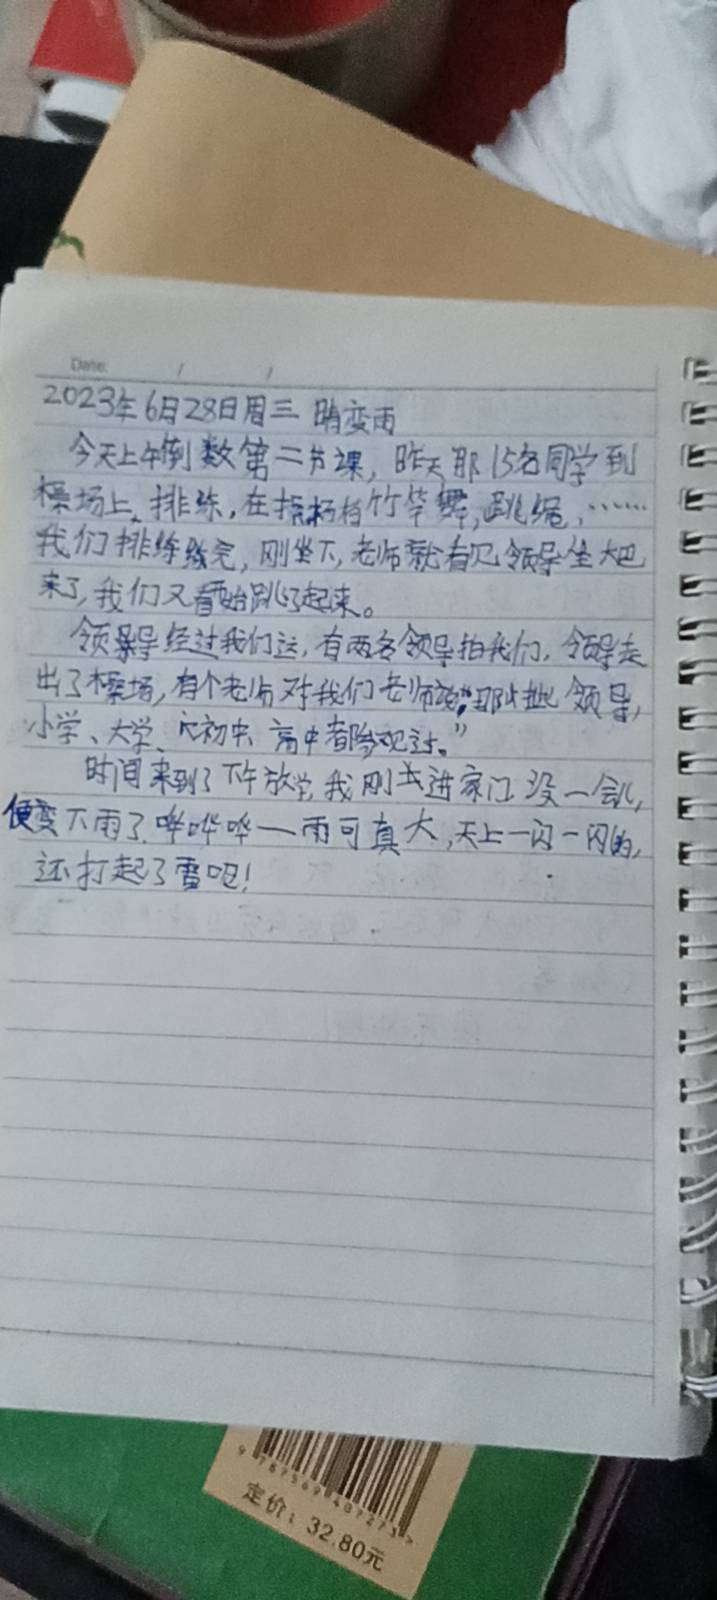 Date: / /
2023年6月28日周三 晴变雨
今天上午倒数第二节课，昨天那15名同学到
操场上，排练，在操场档竹竿舞，跳绳，……
我们排练完，刚坐下，老师就看见领导坐大巴
来了，我们又开始跳了起来。
领导经过我们这，有两名领导拍我们，领导走
出了操场，有个老师对我们老师说：“那批领导，
小学、大学、初中、高中都参观过。”
时间来到了下午放学，我刚走进家门没一会儿，
便下雨了，哗哗哗——雨可真大，天上一闪一闪的，
还打起了雷吧！
9 787569 407273 >
定价：32.80元